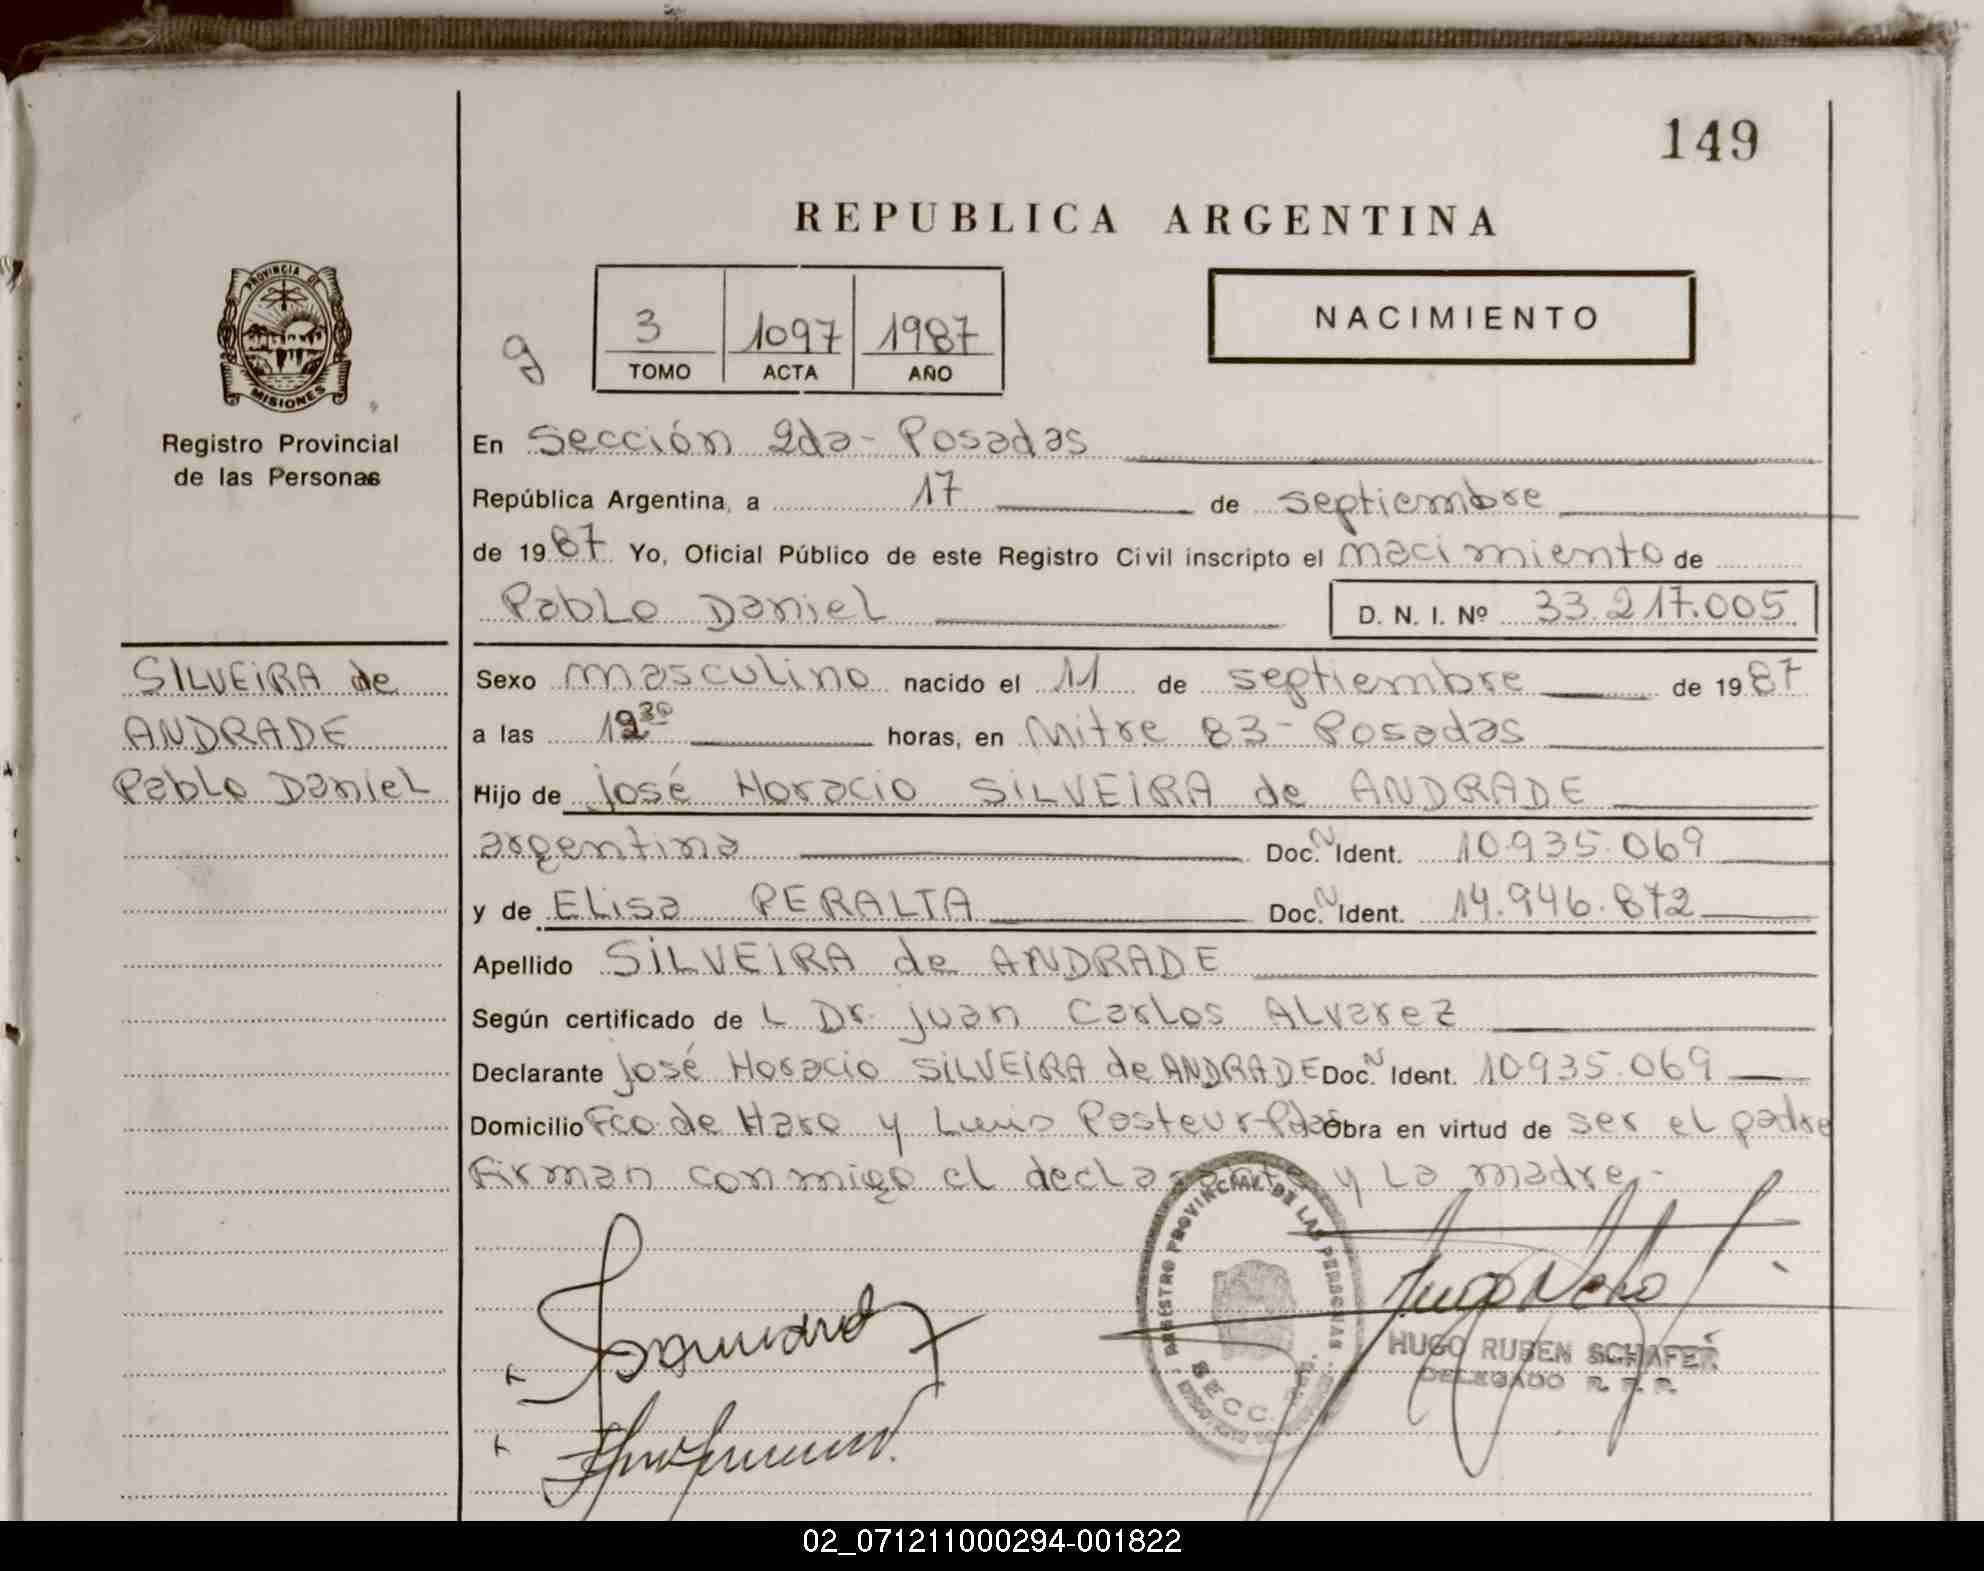 149
REPUBLICA ARGENTINA
PROVINCIA DE
MISIONES
Registro Provincial
de las Personas
3 1097 1987
TOMO ACTA AÑO
NACIMIENTO
En Sección 2da - Posadas
República Argentina, a 17 de septiembre
de 1987 Yo, Oficial Público de este Registro Civil inscripto el nacimiento de
Pablo Daniel D. N. I. Nº 33.217.005
SILVEIRA de
ANDRADE
Pablo Daniel
Sexo masculino nacido el 11 de septiembre de 1987
a las 12 30 horas, en Mitre 83 - Posadas
Hijo de José Horacio SILVEIRA de ANDRADE
argentina Doc. N Ident. 10.935.069
y de Elisa PERALTA Doc. N Ident. 14.946.872
Apellido SILVEIRA de ANDRADE
Según certificado de L Dr. Juan Carlos Alvarez
Declarante José Horacio SILVEIRA de ANDRADE Doc. N Ident. 10.935.069
Domicilio Fco de Haro y Luis Pasteur - Pdas Obra en virtud de ser el padre
Firman conmigo el declarante y la madre.-
REGISTRO PROVINCIAL DE LAS PERSONAS
SECC.
HUGO RUBEN SCHAFER
DELEGADO R. P. P.
02_071211000294-001822